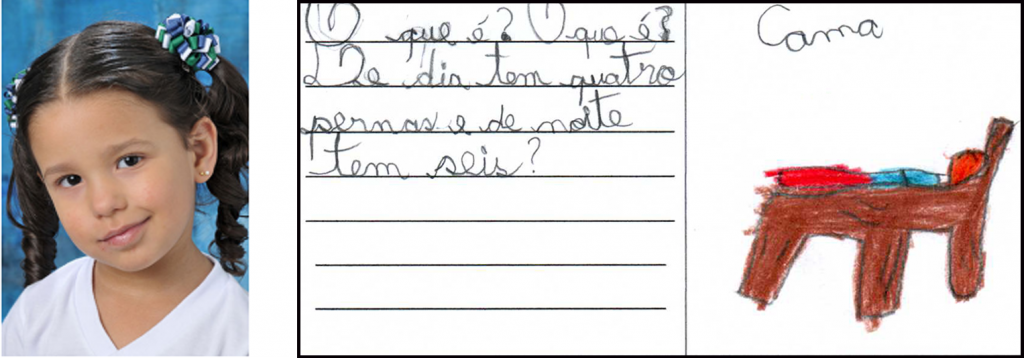 O que é? O que é?
De dia tem quatro
pernas e de noite
tem seis?
Cama